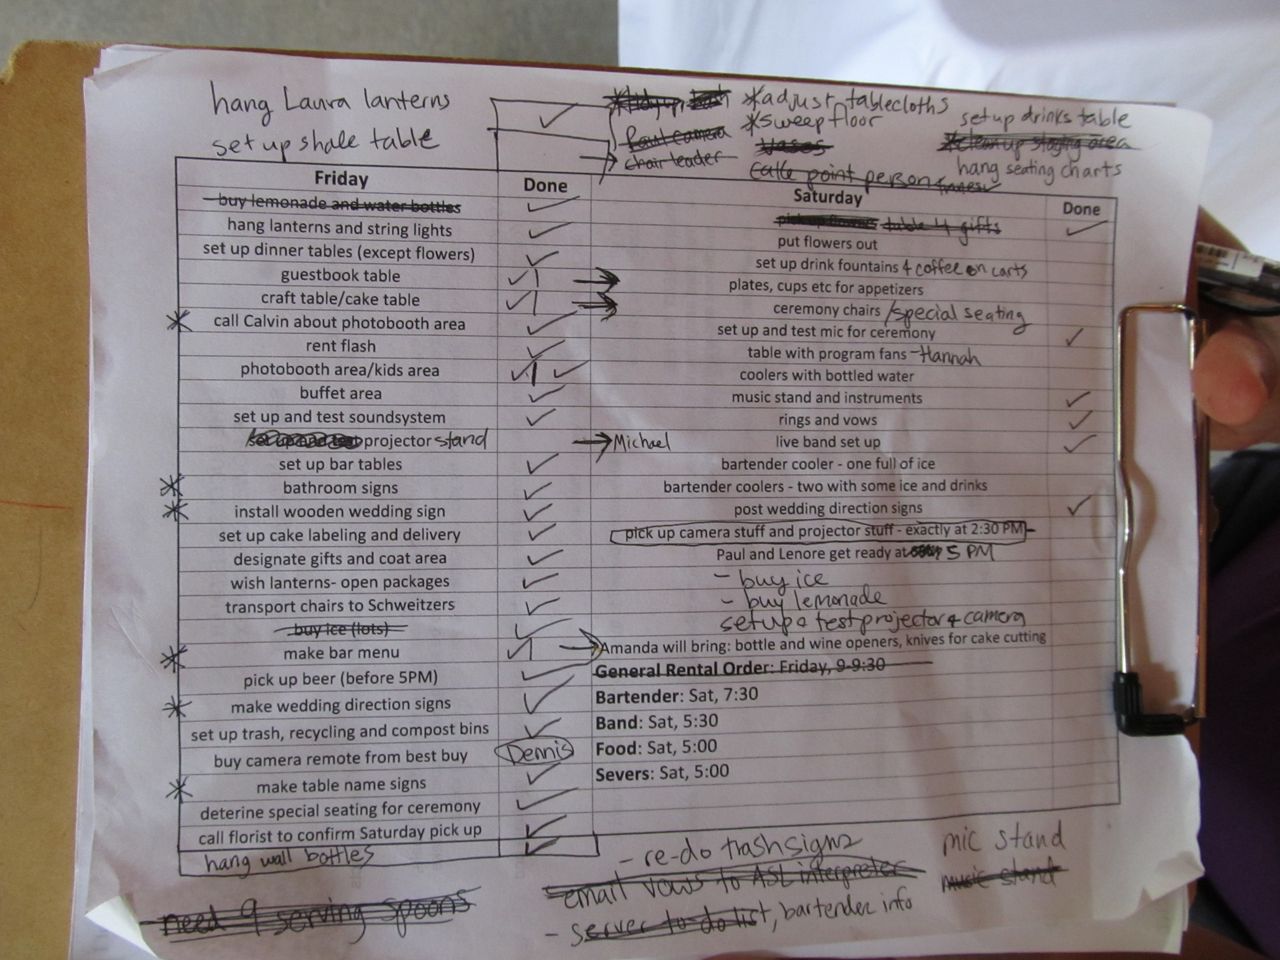 hang Laura lanterns
set up shale table
*tidy up trash
Paul camera
chair leader
*adjust tablecloths
*sweep floor
vases
Calle point person
set up drinks table
*clean up staging area
hang seating charts
Friday Done
buy lemonade and water bottles
hang lanterns and string lights
set up dinner tables (except flowers)
guestbook table
craft table/cake table
* call Calvin about photobooth area
rent flash
photobooth area/kids area
buffet area
set up and test soundsystem
set up and test projector stand
set up bar tables
* bathroom signs
* install wooden wedding sign
set up cake labeling and delivery
designate gifts and coat area
wish lanterns- open packages
transport chairs to Schweitzers
buy ice (lots)
* make bar menu
pick up beer (before 5PM)
* make wedding direction signs
set up trash, recycling and compost bins
buy camera remote from best buy Dennis
* make table name signs
deterine special seating for ceremony
call florist to confirm Saturday pick up
hang wall bottles
Saturday Done
pick up flowers table 4 gifts
put flowers out
set up drink fountains & coffee on carts
plates, cups etc for appetizers
ceremony chairs /special seating
set up and test mic for ceremony
table with program fans - Hannah
coolers with bottled water
music stand and instruments
rings and vows
Michael live band set up
bartender cooler - one full of ice
bartender coolers - two with some ice and drinks
post wedding direction signs
pick up camera stuff and projector stuff - exactly at 2:30 PM
Paul and Lenore get ready at 5 PM
- buy ice
- buy lemonade
set up & test projector & camera
Amanda will bring: bottle and wine openers, knives for cake cutting
General Rental Order: Friday, 9-9:30
Bartender: Sat, 7:30
Band: Sat, 5:30
Food: Sat, 5:00
Severs: Sat, 5:00
need 9 serving spoons
- re-do trash signs
email vows to ASL interpreter
- server to do list, bartender info
mic stand
music stand